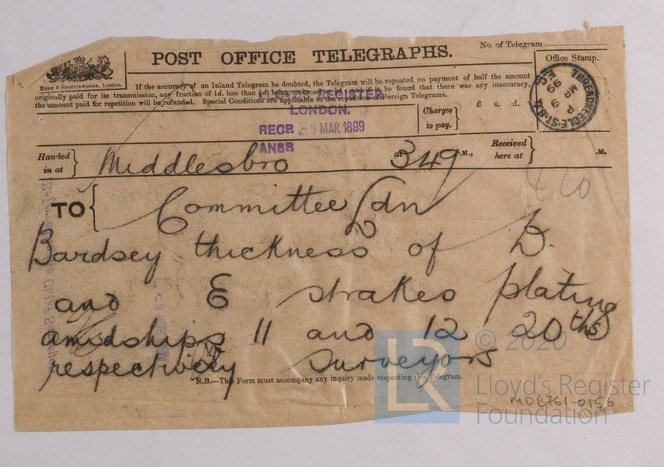 POST OFFICE TELEGRAPHS.
No. of Telegram
Office Stamp.
EYRE & SPOTTISWOODE, London.
If the accuracy of an Inland Telegram be doubted, the Telegram will be repeated on payment of half the amount
originally paid for its transmission, any fraction of 1d. less than ½d. being reckoned as ½d.; and if it be found that there was any inaccuracy,
the amount paid for repetition will be refunded. Special Conditions are applicable to the repetition of Foreign Telegrams.
REGISTER
LONDON.
RECD 9 MAR. 1899
ANSD
THREADNEEDLE ST. B.O.
Charges
to pay.
£ s. d.
Handed
in at
Middlesbro
at
349
M.,
Received
here at
.M.
TO
Committee Ldn
Bardsey thickness of D.
and E strakes plating
amidships 11 and 12 20ths
respectively Surveyors
N.B.—This Form must accompany any inquiry made respecting this Telegram.
© 2020
LR
Lloyd's Register
Foundation
MDL761-0156